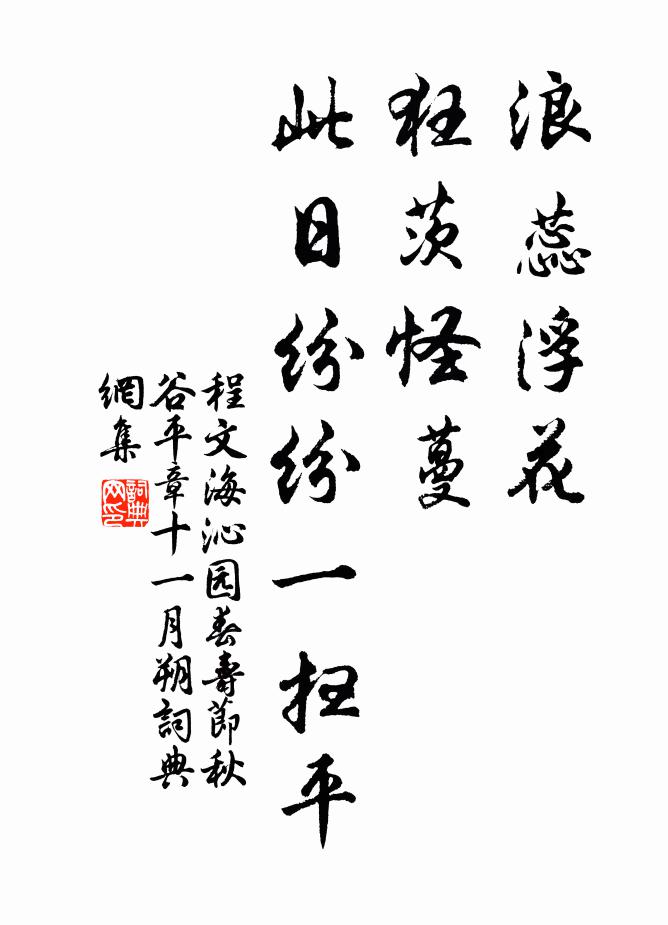 浪蕊浮花
狂茨怪蔓
此日纷纷一扫平
程文海沁园春壽節秋
谷平章十一月朔詞典
網集
詞典
网印